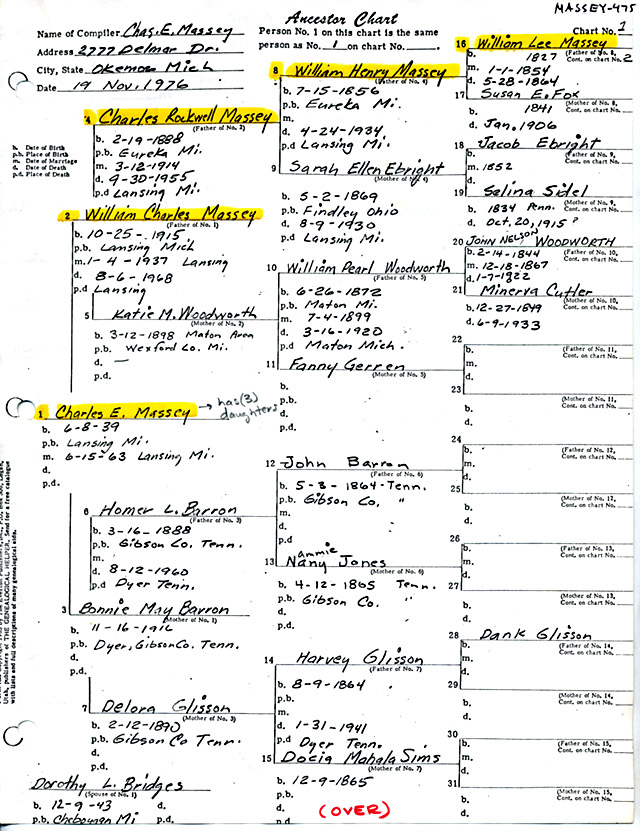 MASSEY-475
Ancestor Chart
Name of Compiler Chas. E. Massey
Person No. 1 on this chart is the same
Chart No. 1
Address 2777 Delmar Dr.
person as No. 1 on chart No.
City, State Okemos Mich
Date 19 Nov. 1976
b. Date of Birth
p.b. Place of Birth
m. Date of Marriage
d. Date of Death
p.d. Place of Death
16 William Lee Massey
1827 (Father of No. 8,
b. Cont. on chart No. 2
m. 1-1-1854
d. 5-28-1864
8 William Henry Massey
(Father of No. 4)
b. 7-15-1856
p.b. Eureka Mi.
m.
d. 4-24-1934
p.d Lansing Mi.
17 Susan E. Fox
(Mother of No. 8,
b. 1841 Cont. on chart No.
d. Jan. 1906
4 Charles Rockwell Massey
(Father of No. 2)
b. 2-19-1888
p.b. Eureka Mi.
m. 3-12-1914
d. 9-30-1955
p.d Lansing Mi.
18 Jacob Ebright
(Father of No. 9,
b. Cont. on chart No.
m. 1852
d.
9 Sarah Ellen Ebright
(Mother of No. 4)
b. 5-2-1869
p.b. Findley Ohio
d. 8-9-1930
p.d Lansing Mi.
19 Selina Sidel
(Mother of No. 9,
b. 1834 Penn. Cont. on chart No.
d. Oct. 20, 1915 ?
2 William Charles Massey
(Father of No. 1)
b. 10-25-1915
p.b. Lansing Mich
m. 1-4-1937 Lansing
d. 8-6-1968
p.d Lansing
20 JOHN NELSON WOODWORTH
(Father of No. 10,
b. 2-14-1844 Cont. on chart No.
m. 12-18-1867
d. 1-7-1922
10 William Pearl Woodworth
(Father of No. 5)
b. 6-26-1872
p.b. Maton Mi.
m. 7-4-1899
d. 3-16-1920
p.d Maton Mich.
21 Minerva Cutler
(Mother of No. 10,
b. 12-27-1849 Cont. on chart No.
d. 6-9-1933
5 Katie M. Woodworth
(Mother of No. 2)
b. 3-12-1898 Maton Area
p.b. Wexford Co. Mi.
d. —
p.d.
22
(Father of No. 11,
b. Cont. on chart No.
m.
d.
11 Fanny Gerren
(Mother of No. 5)
b.
p.b.
d.
p.d.
23
(Mother of No. 11,
b. Cont. on chart No.
d.
1 Charles E. Massey → has (3) daughters
b. 6-8-39
p.b. Lansing Mi.
m. 6-15-63 Lansing Mi.
d.
p.d.
24
(Father of No. 12,
b. Cont. on chart No.
m.
d.
12 John Barron
(Father of No. 6)
b. 5-3-1864-Tenn.
p.b. Gibson Co. "
m.
d.
p.d
25
(Mother of No. 12,
b. Cont. on chart No.
d.
6 Homer L. Barron
(Father of No. 3)
b. 3-16-1888
p.b. Gibson Co. Tenn.
m.
d. 8-12-1960
p.d Dyer Tenn.
26
(Father of No. 13,
b. Cont. on chart No.
m.
d.
13 Nany Jones
ammie
(Mother of No. 6)
b. 4-12-1865 Tenn.
p.b. Gibson Co. "
d.
p.d.
27
(Mother of No. 13,
b. Cont. on chart No.
d.
3 Bonnie May Barron
(Mother of No. 1)
b. 11-16-1916
p.b. Dyer, Gibson Co. Tenn.
d.
p.d.
28 Dank Glisson
(Father of No. 14,
b. Cont. on chart No.
m.
d.
14 Harvey Glisson
(Father of No. 7)
b. 8-9-1864
p.b.
m.
d. 1-31-1941
p.d Dyer Tenn.
29
(Mother of No. 14,
b. Cont. on chart No.
d.
7 Delora Glisson
(Mother of No. 3)
b. 2-12-1890
p.b. Gibson Co Tenn.
d.
p.d.
30
(Father of No. 15,
b. Cont. on chart No.
m.
d.
15 Docia Mahala Sims
(Mother of No. 7)
b. 12-9-1865
p.b.
d.
p.d
31
(Mother of No. 15,
b. Cont. on chart No.
d.
Dorothy L. Bridges
(Spouse of No. 1)
b. 12-9-43 d.
p.b. Cheboygan Mi p.d.
(OVER)
Utah, publishers of THE GENEALOGICAL HELPER. Send for a free catalogue
with lists and full descriptions of many genealogical aids.